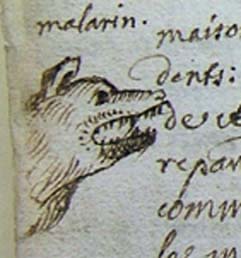 malarin.
maiso
dents:
de ve
repar
comm
les m